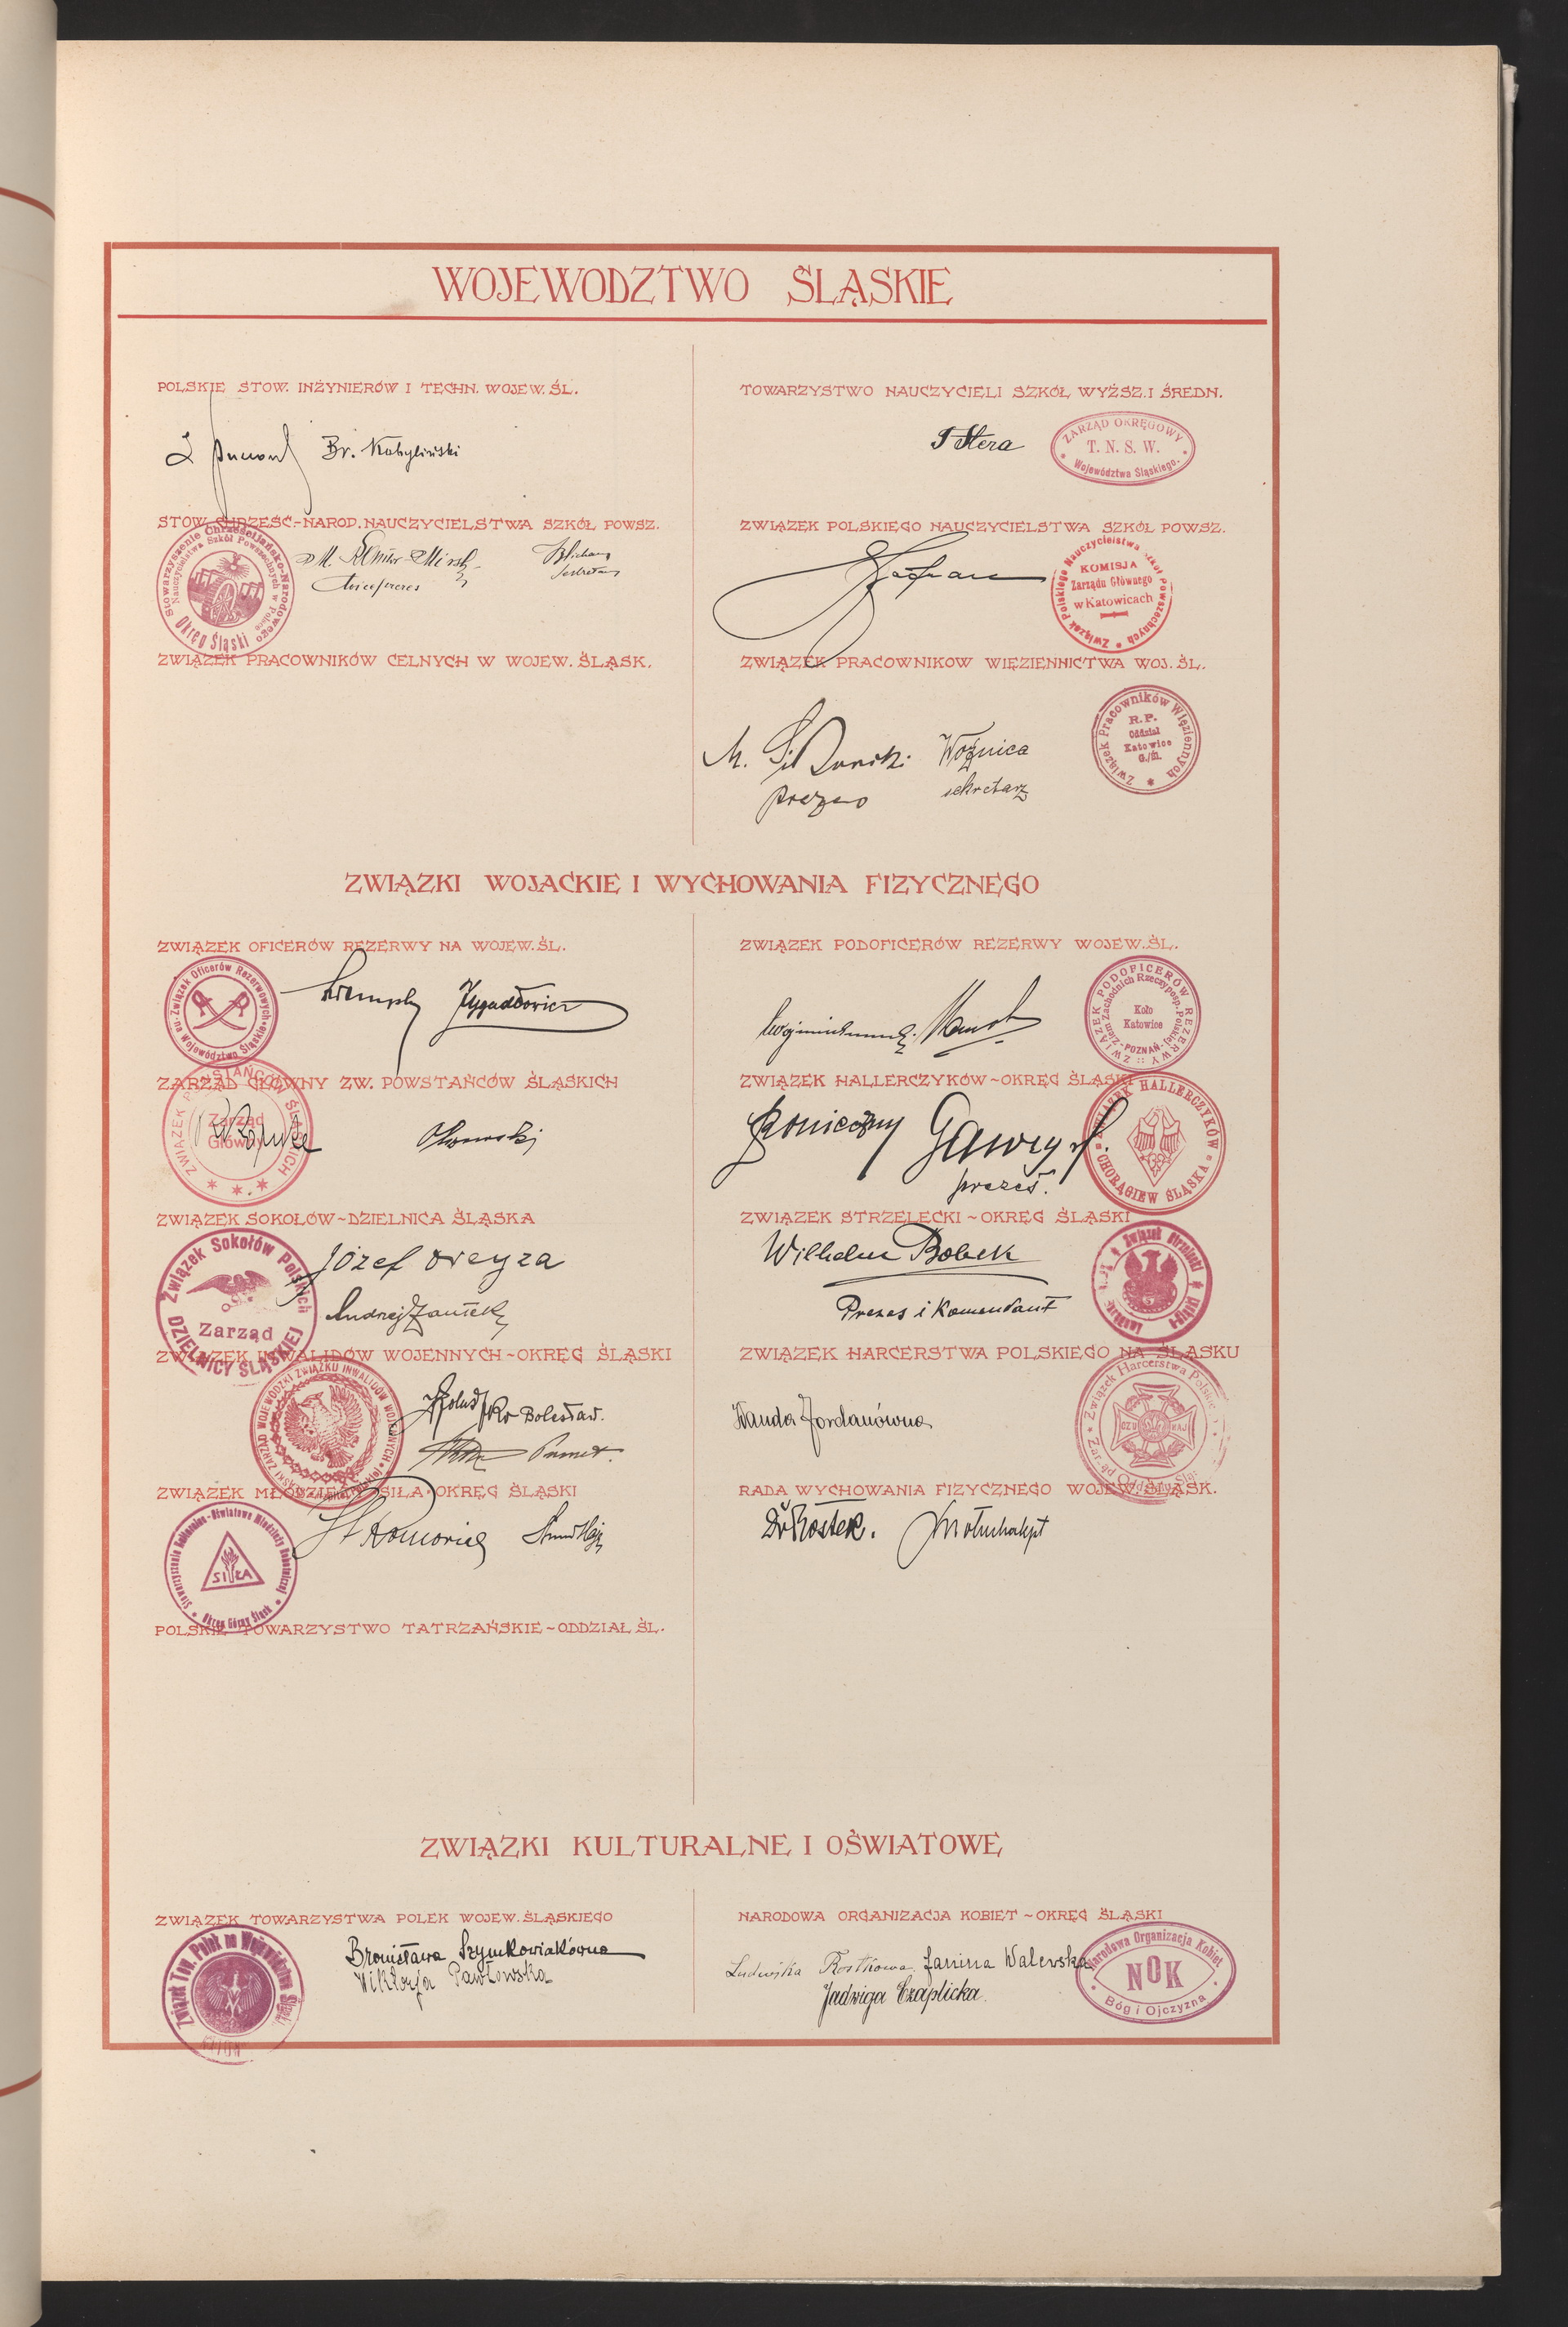 WOJEWODZTWO ŚLĄSKIE
POLSKIE STOW. INŻYNIERÓW I TECHN. WOJEW. ŚL.
Br. Kobyliński
TOWARZYSTWO NAUCZYCIELI SZKÓŁ WYŻSZ. I ŚREDN.
Stera
ZARZĄD OKRĘGOWY
T. N. S. W.
Województwa Śląskiego.
STOW. CHRZEŚC.-NAROD. NAUCZYCIELSTWA SZKÓŁ POWSZ.
Stowarzyszenie Chrześcijańsko-Narodowego
Nauczycielstwa Szkół Powszechnych w Polsce
Okręg Śląski
Wiceprezes
Sekretarz
ZWIĄZEK POLSKIEGO NAUCZYCIELSTWA SZKÓŁ POWSZ.
Związek Polskiego Nauczycielstwa Szkół Powszechnych
KOMISJA
Zarządu Głównego
w Katowicach
ZWIĄZEK PRACOWNIKÓW CELNYCH W WOJEW. ŚLĄSK.
ZWIĄZEK PRACOWNIKOW WIĘZIENNICTWA WOJ. ŚL.
M.
Woźnica
prezes
sekretarz
Związek Pracowników Więziennych
R. P.
Oddział
Katowice
G./Śl.
ZWIĄZKI WOJACKIE I WYCHOWANIA FIZYCZNEGO
ZWIĄZEK OFICERÓW REZERWY NA WOJEW. ŚL.
Związek Oficerów Rezerwowych
Województwo Śląskie
ZWIĄZEK PODOFICERÓW REZERWY WOJEW. ŚL.
ZWIĄZEK PODOFICERÓW REZERWY
Ziem Zachodnich Rzeczyposp. Polskiej
POZNAŃ
Koło
Katowice
ZARZĄD GŁÓWNY ZW. POWSTAŃCÓW ŚLĄSKICH
ZWIĄZEK POWSTAŃCÓW ŚLĄSKICH
Zarząd
Główny
ZWIĄZEK HALLERCZYKÓW ~ OKRĘG ŚLĄSKI
Konieczny
Gawrych
prezes.
ZWIĄZEK HALLERCZYKÓW
CHORĄGIEW ŚLĄSKA
ZWIĄZEK SOKOŁÓW ~ DZIELNICA ŚLĄSKA
Związek Sokołów Polskich
Zarząd
DZIELNICY ŚLĄSKIEJ
Józef Dreyza
Andrzej
ZWIĄZEK STRZELECKI ~ OKRĘG ŚLĄSKI
Wilhelm Bobek
Prezes i Komendant
Związek Strzelecki
ZWIĄZEK INWALIDÓW WOJENNYCH ~ OKRĘG ŚLĄSKI
ZARZĄD WOJEWÓDZKI ZWIĄZKU INWALIDÓW WOJENNYCH
Bolesław.
ZWIĄZEK HARCERSTWA POLSKIEGO NA ŚLĄSKU
Wanda Jordanówna
Związek Harcerstwa Polskiego
CZUWAJ
ZWIĄZEK MŁODZIEŻY "SIŁA" OKRĘG ŚLĄSKI
Stowarzyszenie Kulturalno-Oświatowe Młodzieży Robotniczej
SIŁA
Okręg Górny Śląsk
RADA WYCHOWANIA FIZYCZNEGO WOJEW. ŚLĄSK.
Dr Rostek.
POLSKIE TOWARZYSTWO TATRZAŃSKIE ~ ODDZIAŁ ŚL.
ZWIĄZKI KULTURALNE I OŚWIATOWE
ZWIĄZEK TOWARZYSTWA POLEK WOJEW. ŚLĄSKIEGO
Związek Tow. Polek na Województwo Śląski
Bronisława Szymkowiakówna
Wiktorja Pawłowska
NARODOWA ORGANIZACJA KOBIET ~ OKRĘG ŚLĄSKI
Ludwika Rostkowa Janina Walewska
Jadwiga Czaplicka.
Narodowa Organizacja Kobiet
NOK
Bóg i Ojczyzna